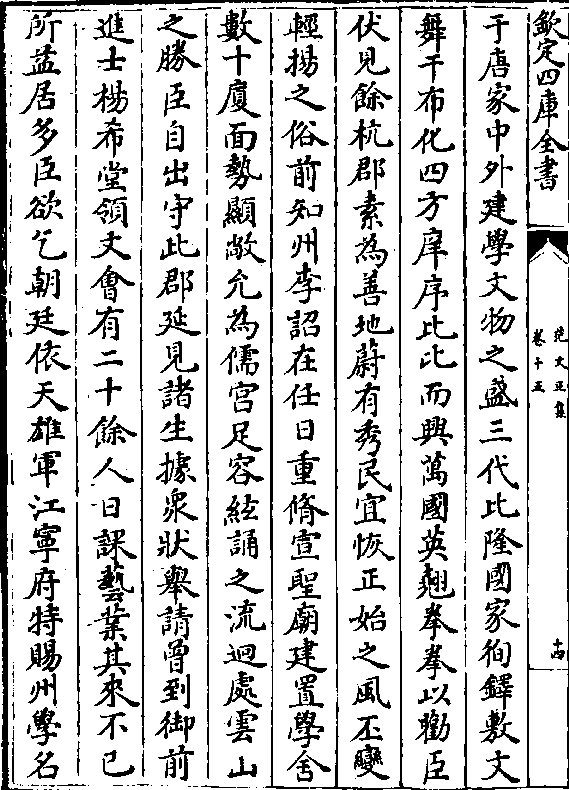 欽定四庫全書
范文正集
卷十五
十四
于唐家中外建學文物之盛三代比隆國家徇鐸敷文
舞干布化四方庠序比比而興萬國英翹拳拳以勸臣
伏見餘杭郡素為善地蔚有秀民宜恢正始之風丕變
輕揚之俗前知州李諮在任日重脩宣聖廟建置學舍
數十廈面勢顯敞允為儒宮足容絃誦之流迥處雲山
之勝臣自出守此郡延見諸生據衆狀舉請曾到御前
進士楊希堂領文會有二十餘人日課藝業其來不已
所益居多臣欲乞朝廷依天雄軍江寧府特賜州學名